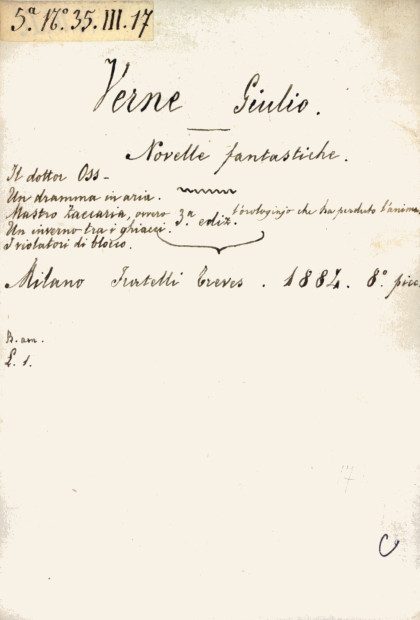 5.ª 17.º 35. III. 17
Verne Giulio.
Novelle fantastiche.
Il dottor Oss-
Un dramma in aria.
Mastro Zaccaria, ovvero l'orologiajo che ha perduto l'anima
Un inverno tra i ghiacci.
3.ª ediz.
I violatori di blocco.
Milano Fratelli Treves. 1884. 8.º picc
B. am.
L. 1.